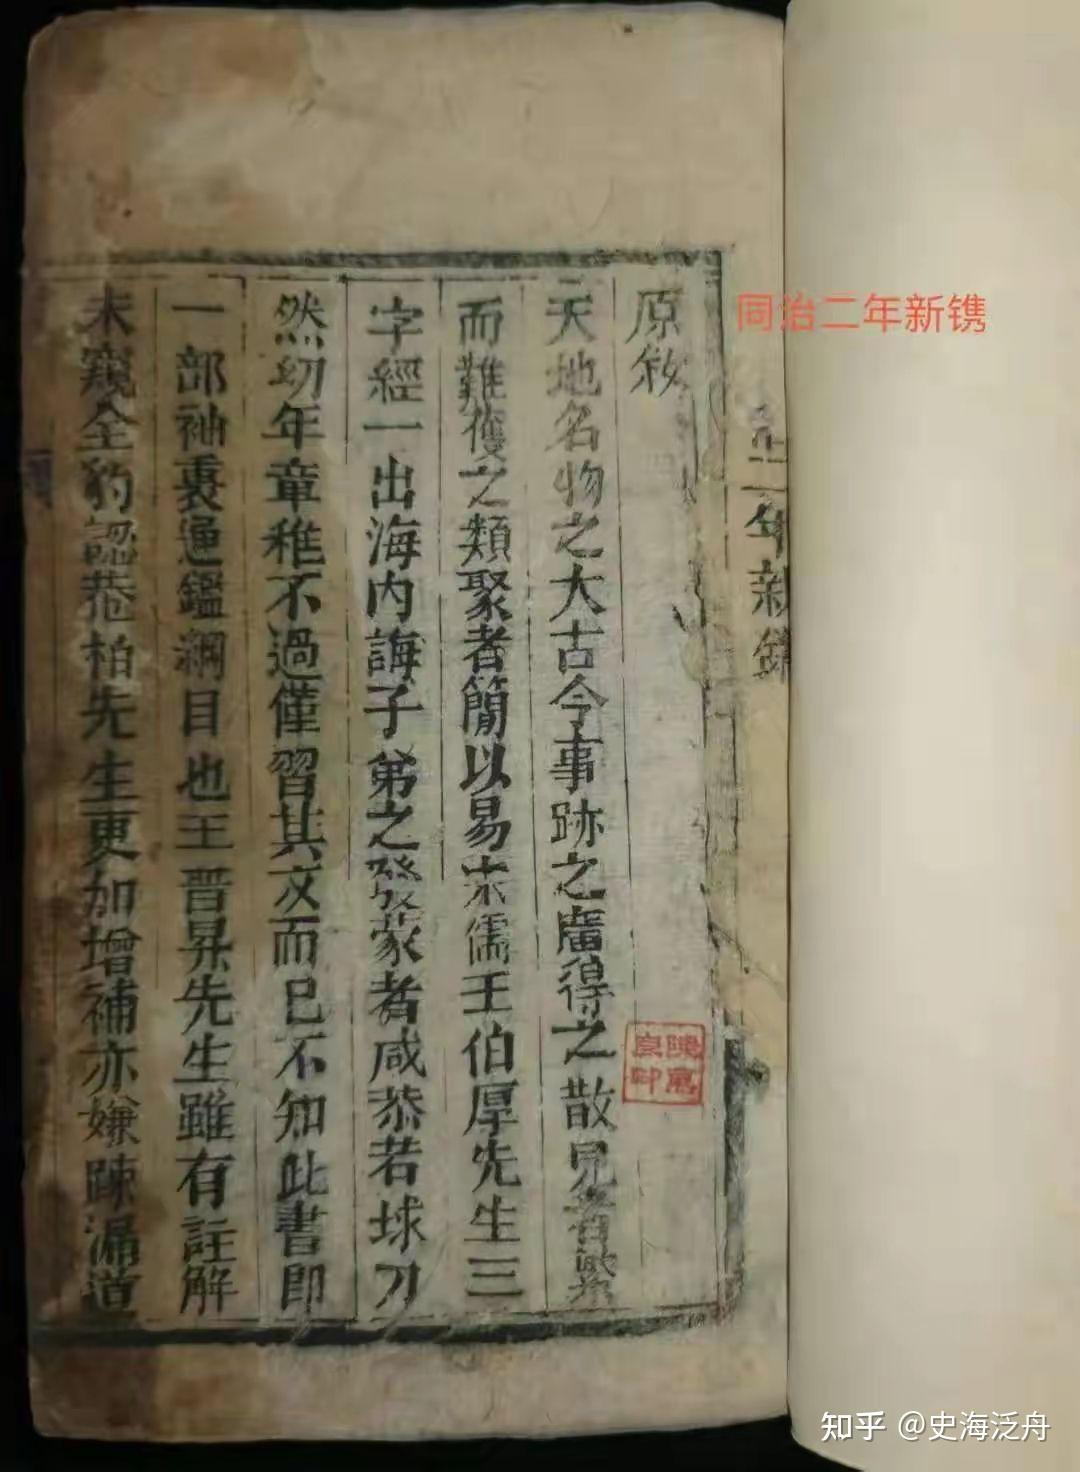 原敘
天地名物之大古今事跡之廣得之散見者繁
而難獲之類聚者簡以易宋儒王伯厚先生三
字經一出海内誨子弟之發蒙者咸恭若球刀
然幼年章稚不過僅習其文而已不知此書即
一部袖裏通鑑綱目也王晋昇先生雖有註解
未窺全豹認菴柏先生更加增補亦嫌踈漏道
同治二年新镌
二年新鐫
知乎 @史海泛舟